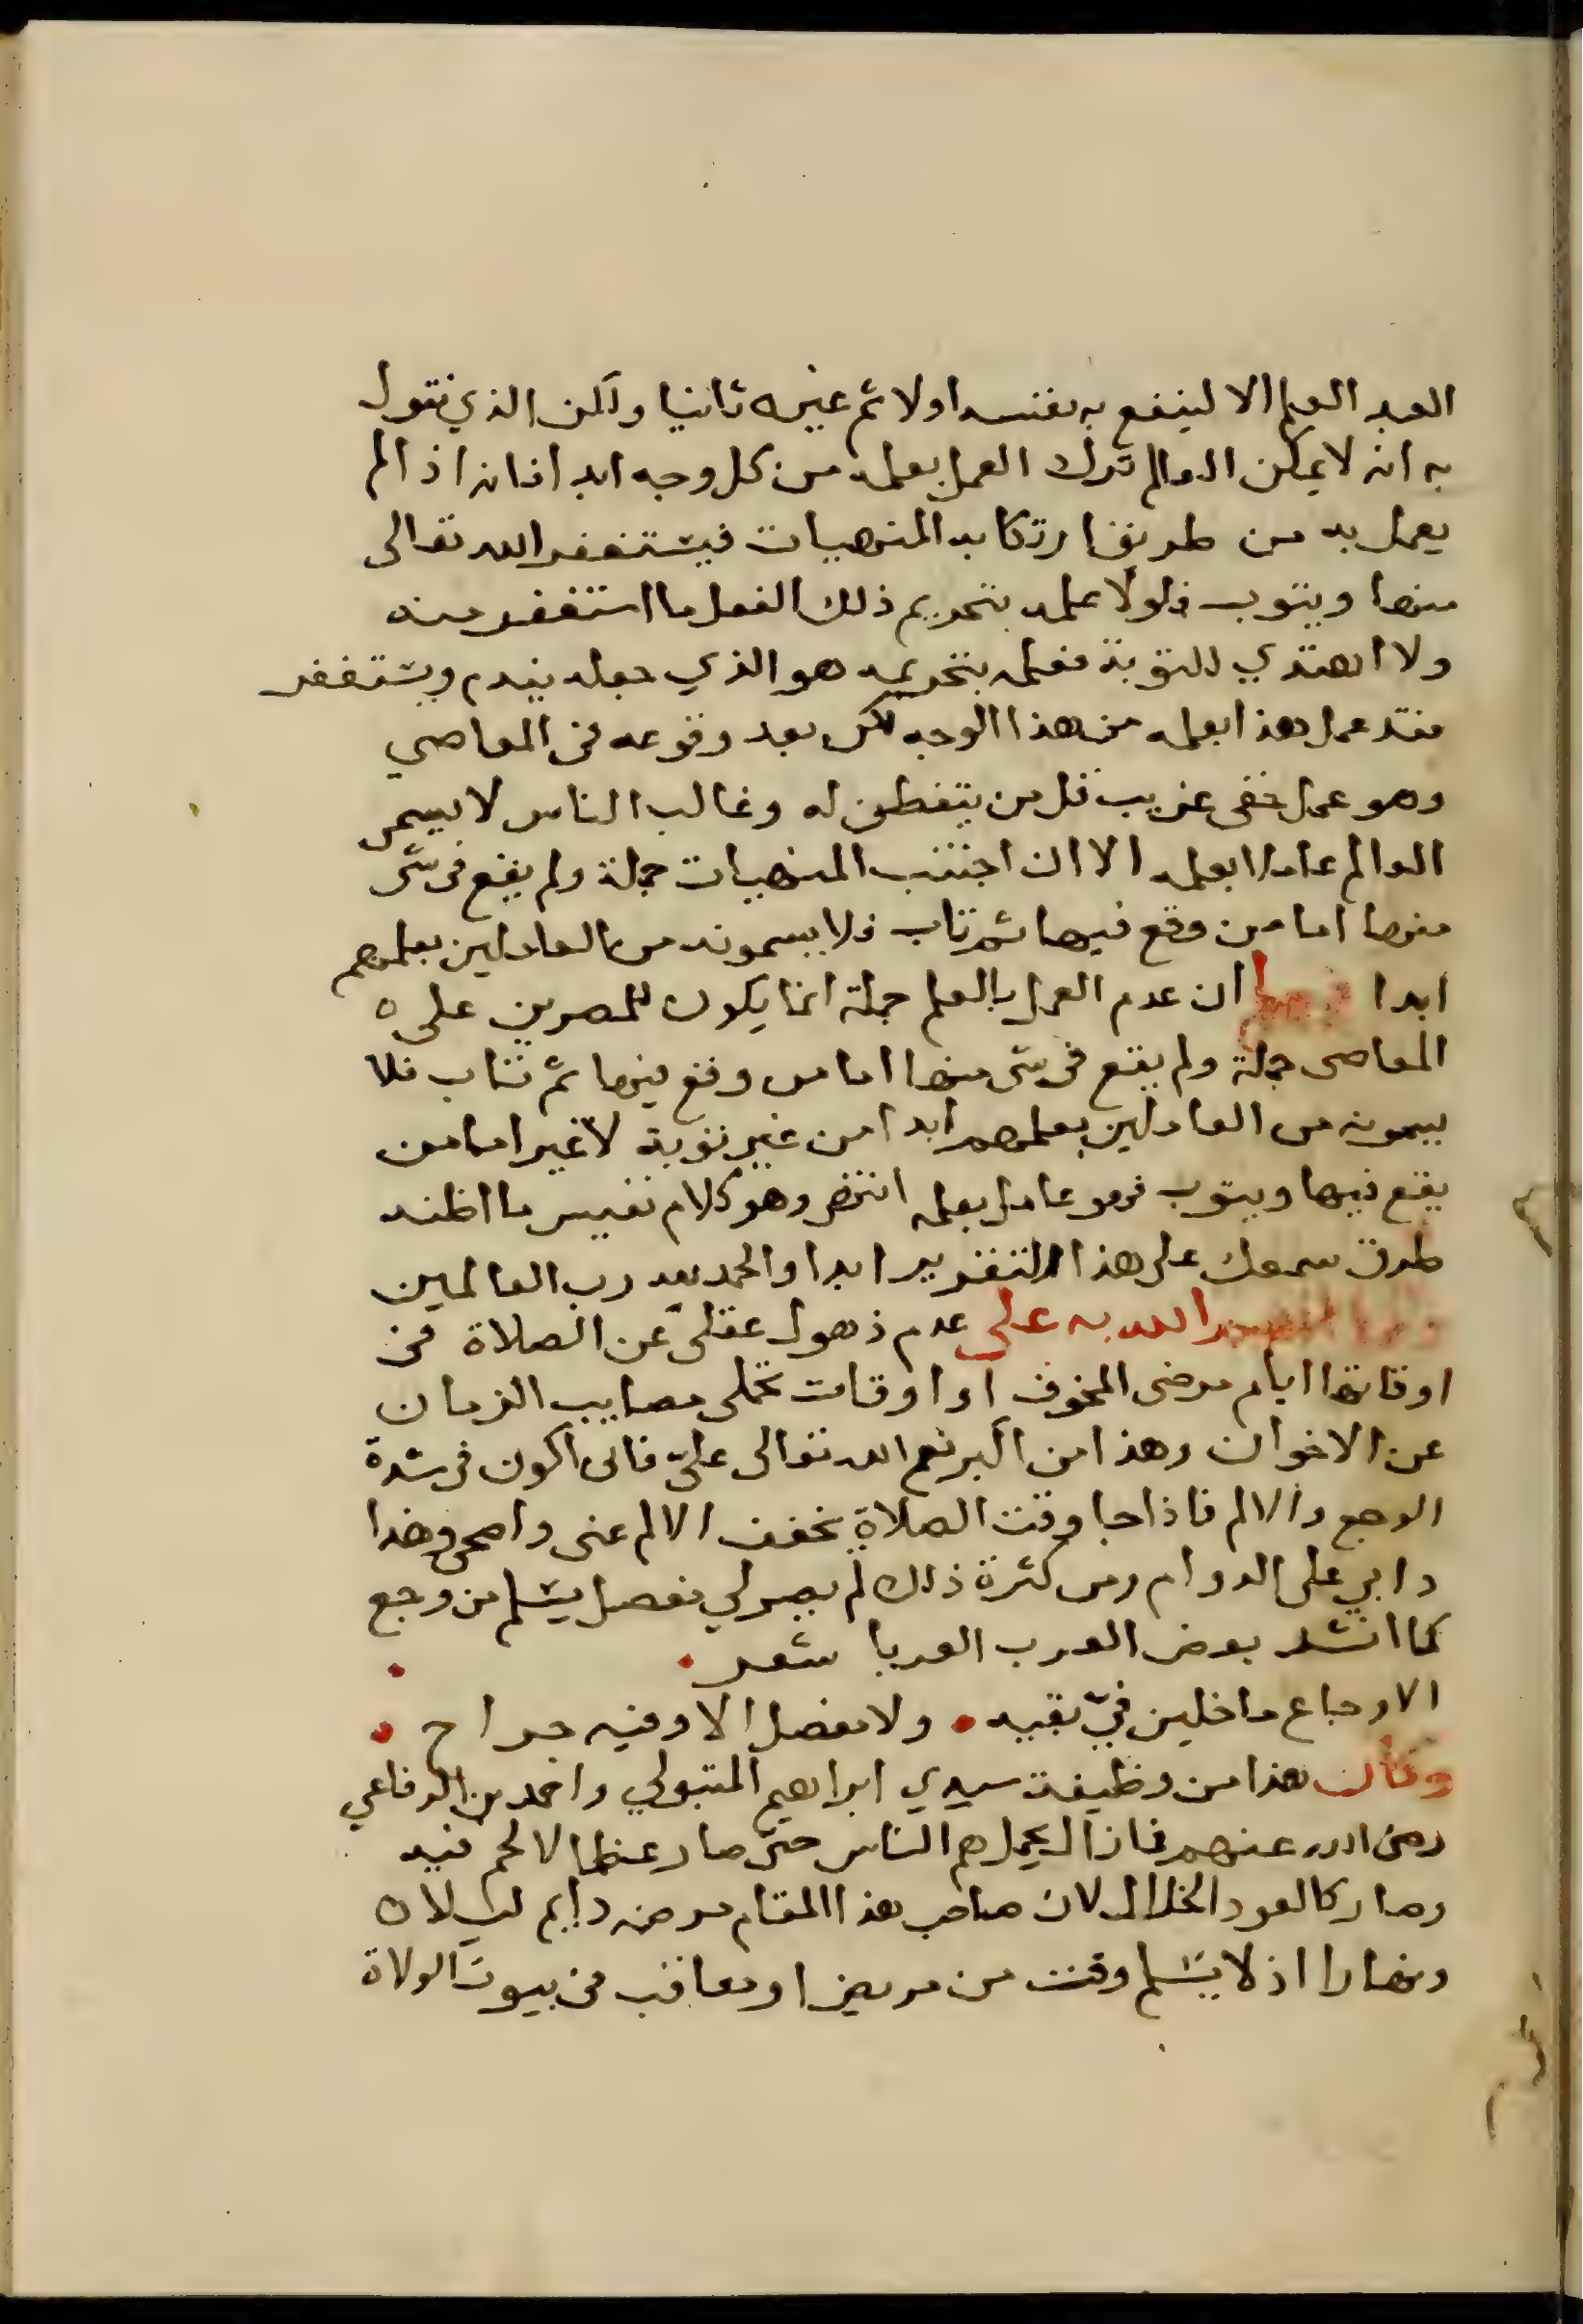 العبد العلم الا لينفع به نفسه اولا ثم غيره ثانيا ولكن الذي نقول
به انه لا يمكن العالم ترك العمل بعلمه من كل وجه ابدا فانه اذا لم
يعمل به من طريق ارتكابه المنهيات فيستغفر الله تعالى
منها ويتوب فلولا علمه بتحريم ذلك الفعل ما استغفر منه
ولا اهتدي للتوبة فعلمه بتحريمه هو الذي جعله يندم ويستغفر
فقد عمل هذا بعلمه من هذا الوجه لكن بعد وقوعه في المعاصي
وهو عمل خفي غريب قل من يتفطن له وغالب الناس لا يسمى
العالم عاملا بعلمه الا ان اجتنب المنهيات جملة ولم يقع في شى
منها اما من وقع فيها ثم تاب فلا يسمونه من العاملين بعلمهم
ابدا ان عدم العمل بالعلم جملة انما يكون للمصرين على
المعاصى جملة ولم يقع في شى منها اما من وقع فيها ثم تاب فلا
يسمونه من العاملين بعلمهم ابدا من غير توبة لا غير اما من
يقع فيها ويتوب فهو عامل بعلمه انتهى وهو كلام نفيس ما اظنه
طرق سمعك على هذا التقرير ابدا والحمد لله رب العالمين
الله به على عدم ذهول عقلي عن الصلاة في
اوقاتها ايام مرضى المخوف او اوقات تحملى مصايب الزمان
عن الاخوان وهذا من اكبر نعم الله تعالى علىّ فانى اكون في شدة
الوجع والالم فاذا جا وقت الصلاة يخفف الالم عنى واصحى وهذا
دابي على الدوام ومن كثرة ذلك لم يصر لي مفصل يسلم من وجع
كما انشد بعض العرب العربا شعر
الاوجاع ما خلين فيّ بقيه ولا مفصل الا وفيه جراح
وكان هذا من وظيفة سيدي ابراهيم المتبولي واحمد بن الرفاعي
رضى الله عنهم فما زال يحمل هم الناس حتى صار عظما لا لحم فيه
وصار كالعود الخلال لان صاحب هذا المقام مرضه دايم ليلا
ونهارا اذ لا يسلم وقت من مريض او معاقب في بيوت الولاة